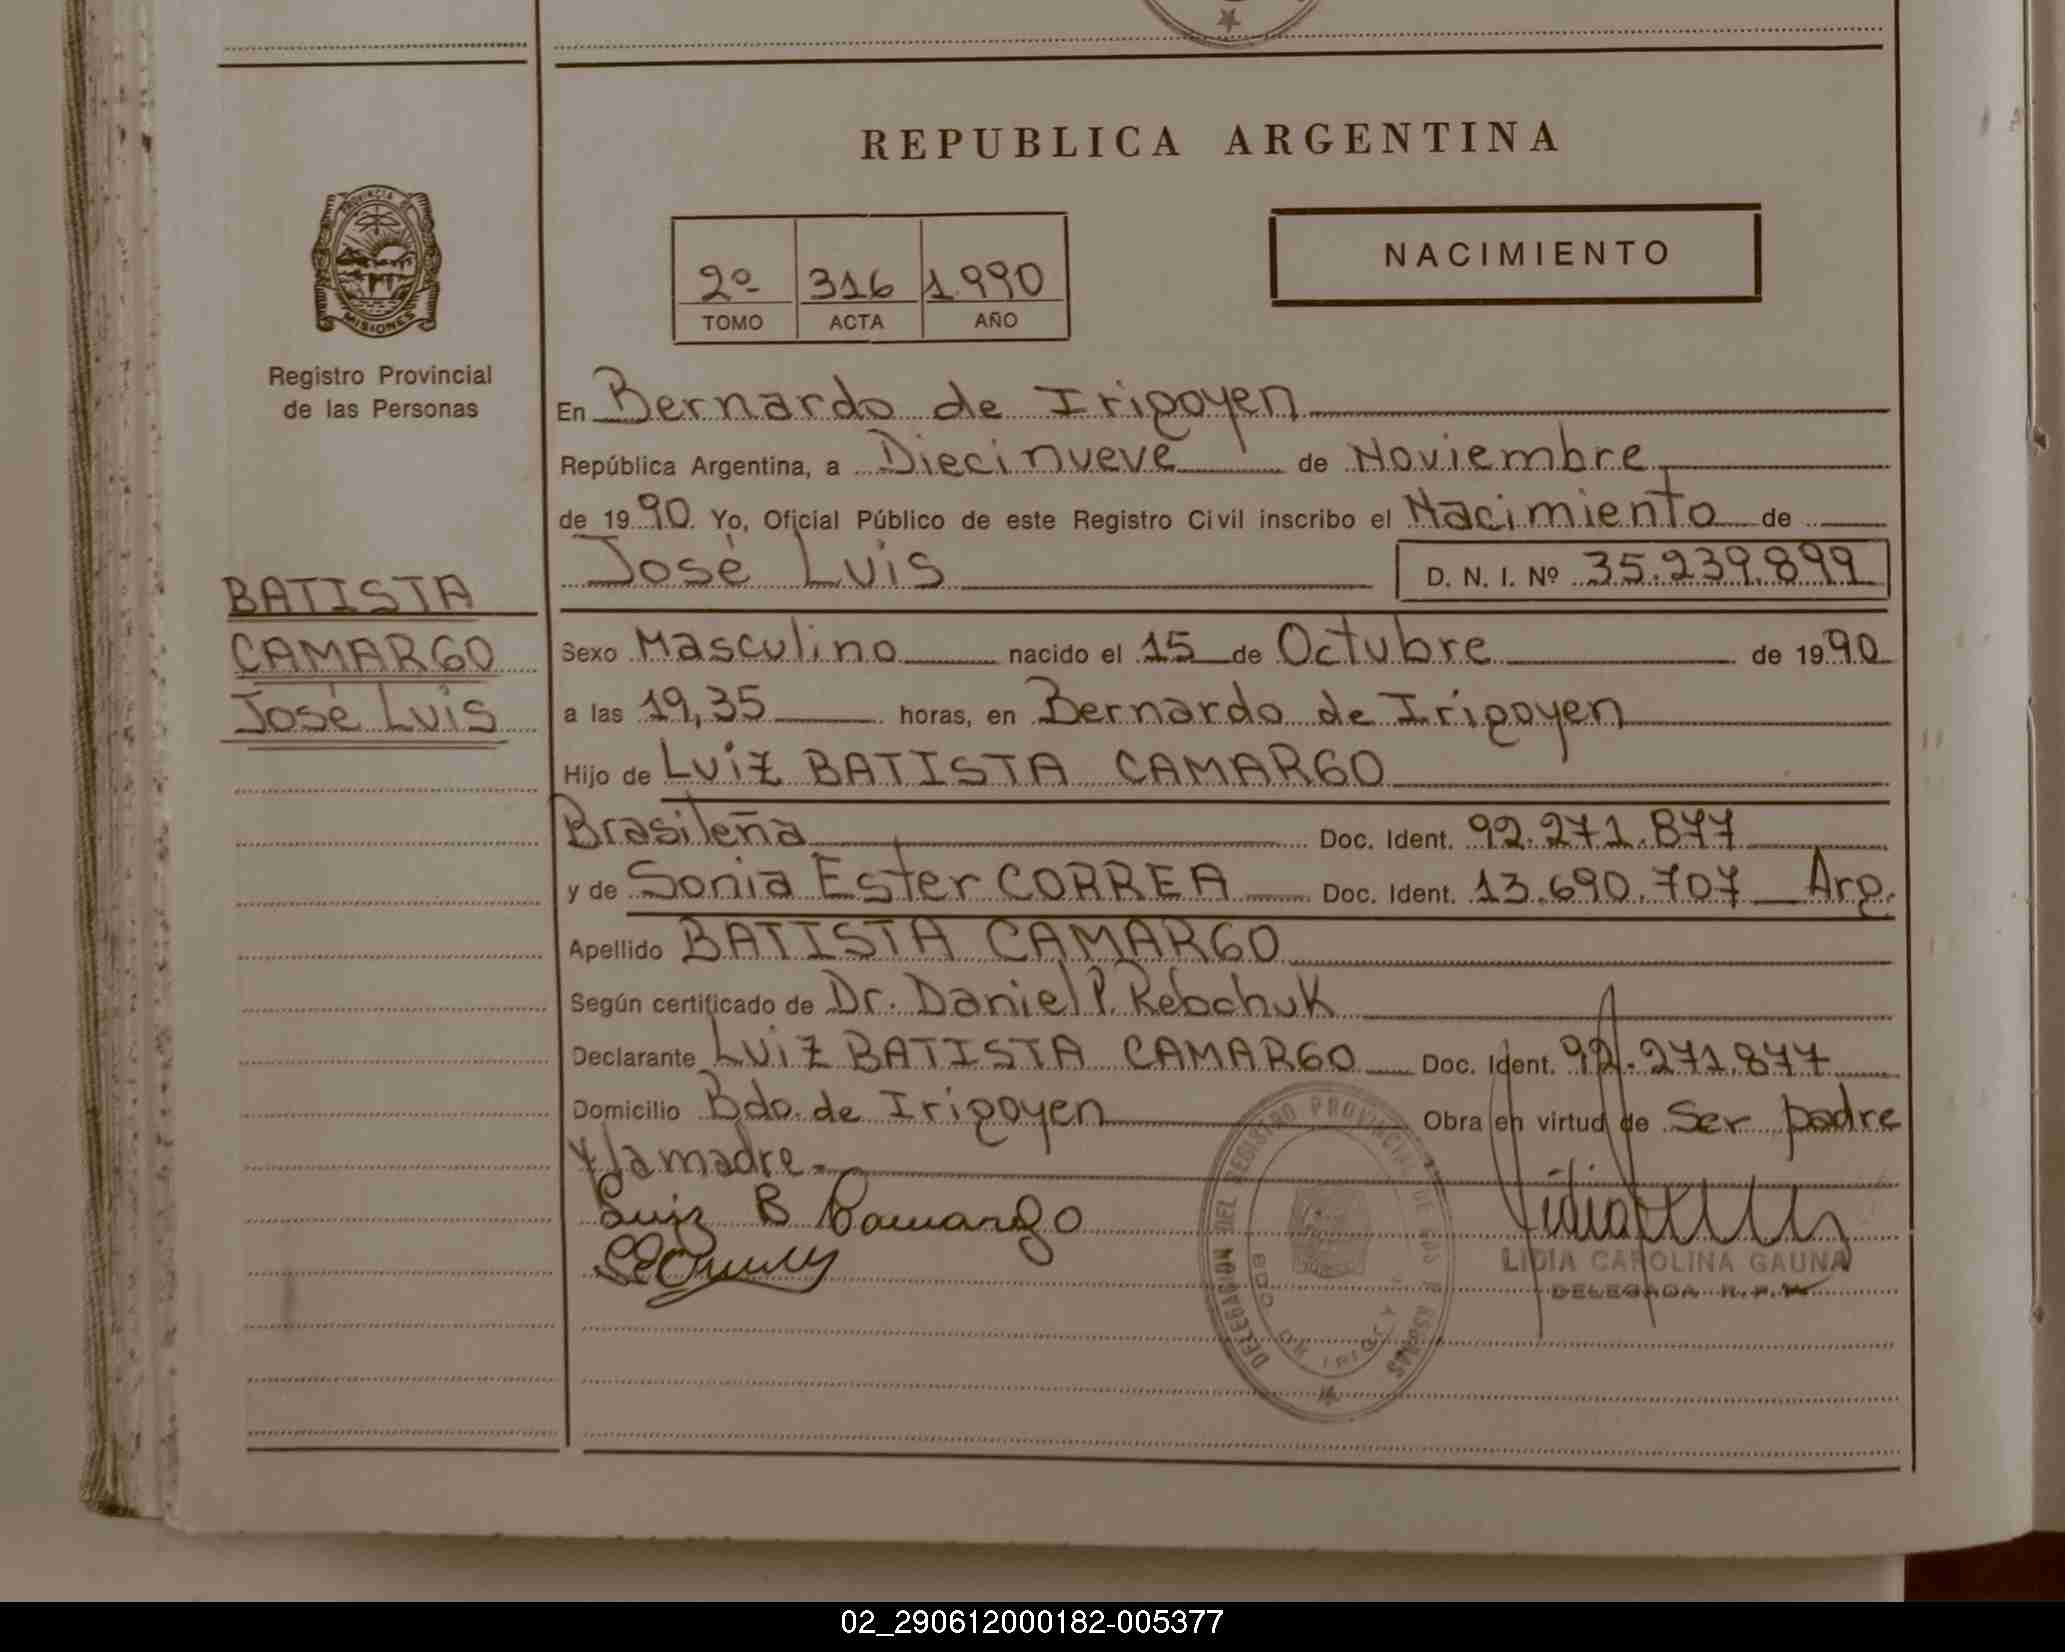 REPUBLICA ARGENTINA
PROVINCIA DE
MISIONES
Registro Provincial
de las Personas
NACIMIENTO
2º 316 1.990
TOMO ACTA AÑO
En Bernardo de Irigoyen
República Argentina, a Diecinueve de Noviembre
de 1990. Yo, Oficial Público de este Registro Civil inscribo el Nacimiento de
José Luis D. N. I. Nº 35.239.899
BATISTA
CAMARGO
José Luis
Sexo Masculino nacido el 15 de Octubre de 1990
a las 19,35 horas, en Bernardo de Irigoyen
Hijo de Luiz BATISTA CAMARGO
Brasileña Doc. Ident. 92.271.877
y de Sonia Ester CORREA Doc. Ident. 13.690.707 Arg.
Apellido BATISTA CAMARGO
Según certificado de Dr. Daniel P. Rebchuk
Declarante Luiz BATISTA CAMARGO Doc. Ident. 92.271.877
Domicilio Bdo. de Irigoyen Obra en virtud de Ser padre
y la madre.
Luiz B Camargo
LIDIA CAROLINA GAUNA
DELEGADA R.P.
DELEGACION DEL REGISTRO PROVINCIAL DE LAS PERSONAS
BDO DE IRIGOYEN
02_290612000182-005377